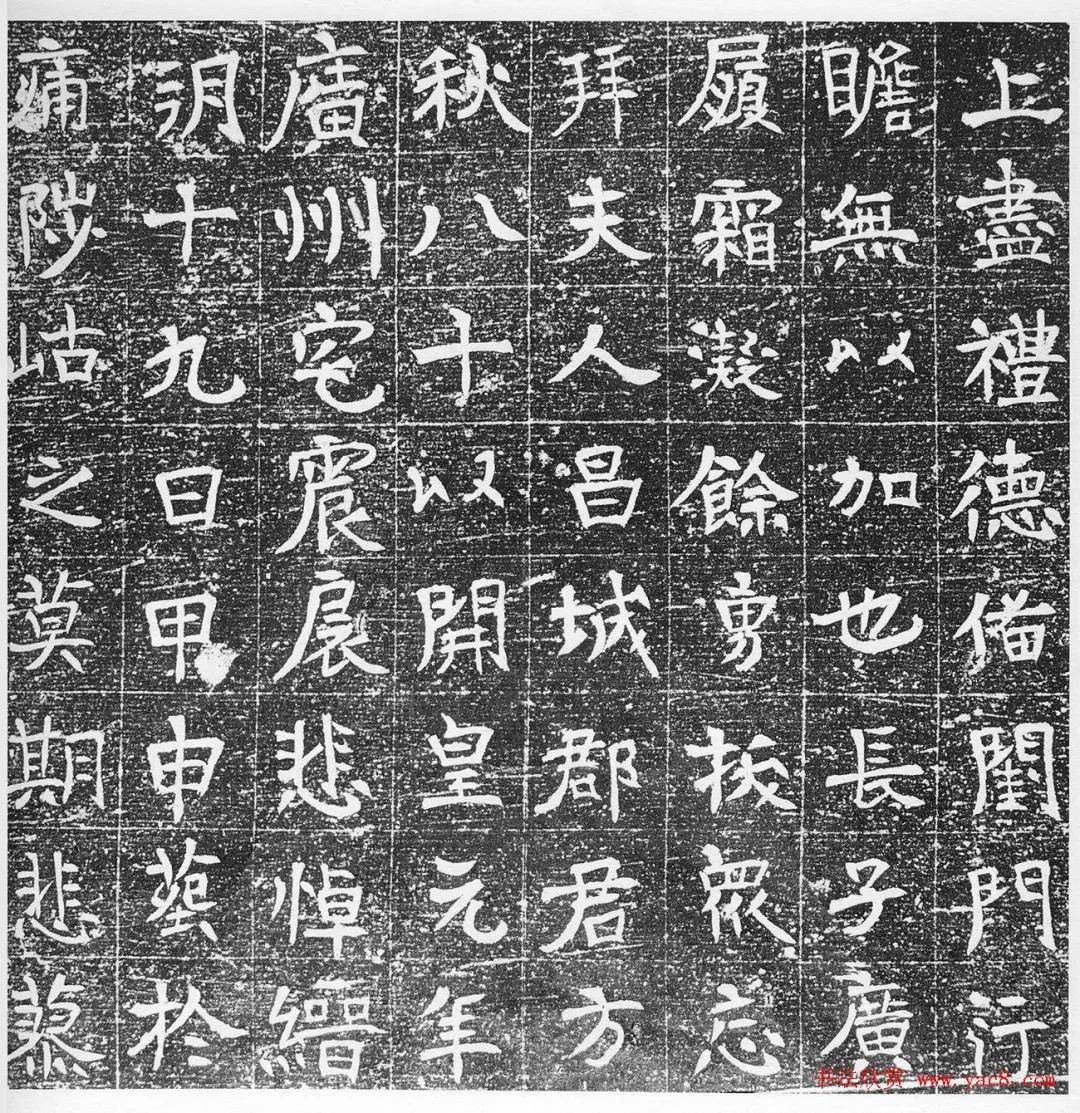 上盡禮德備閨門行
瞻無以加也長子廣
履霜凝餘勇拔衆忘
拜夫人昌城郡君方
秋八十以開皇元年
廣州宅震展悲悼縉
朔十九日甲申葬於
痛陟岵之莫期悲慕
书法欣赏 www.yac8.com